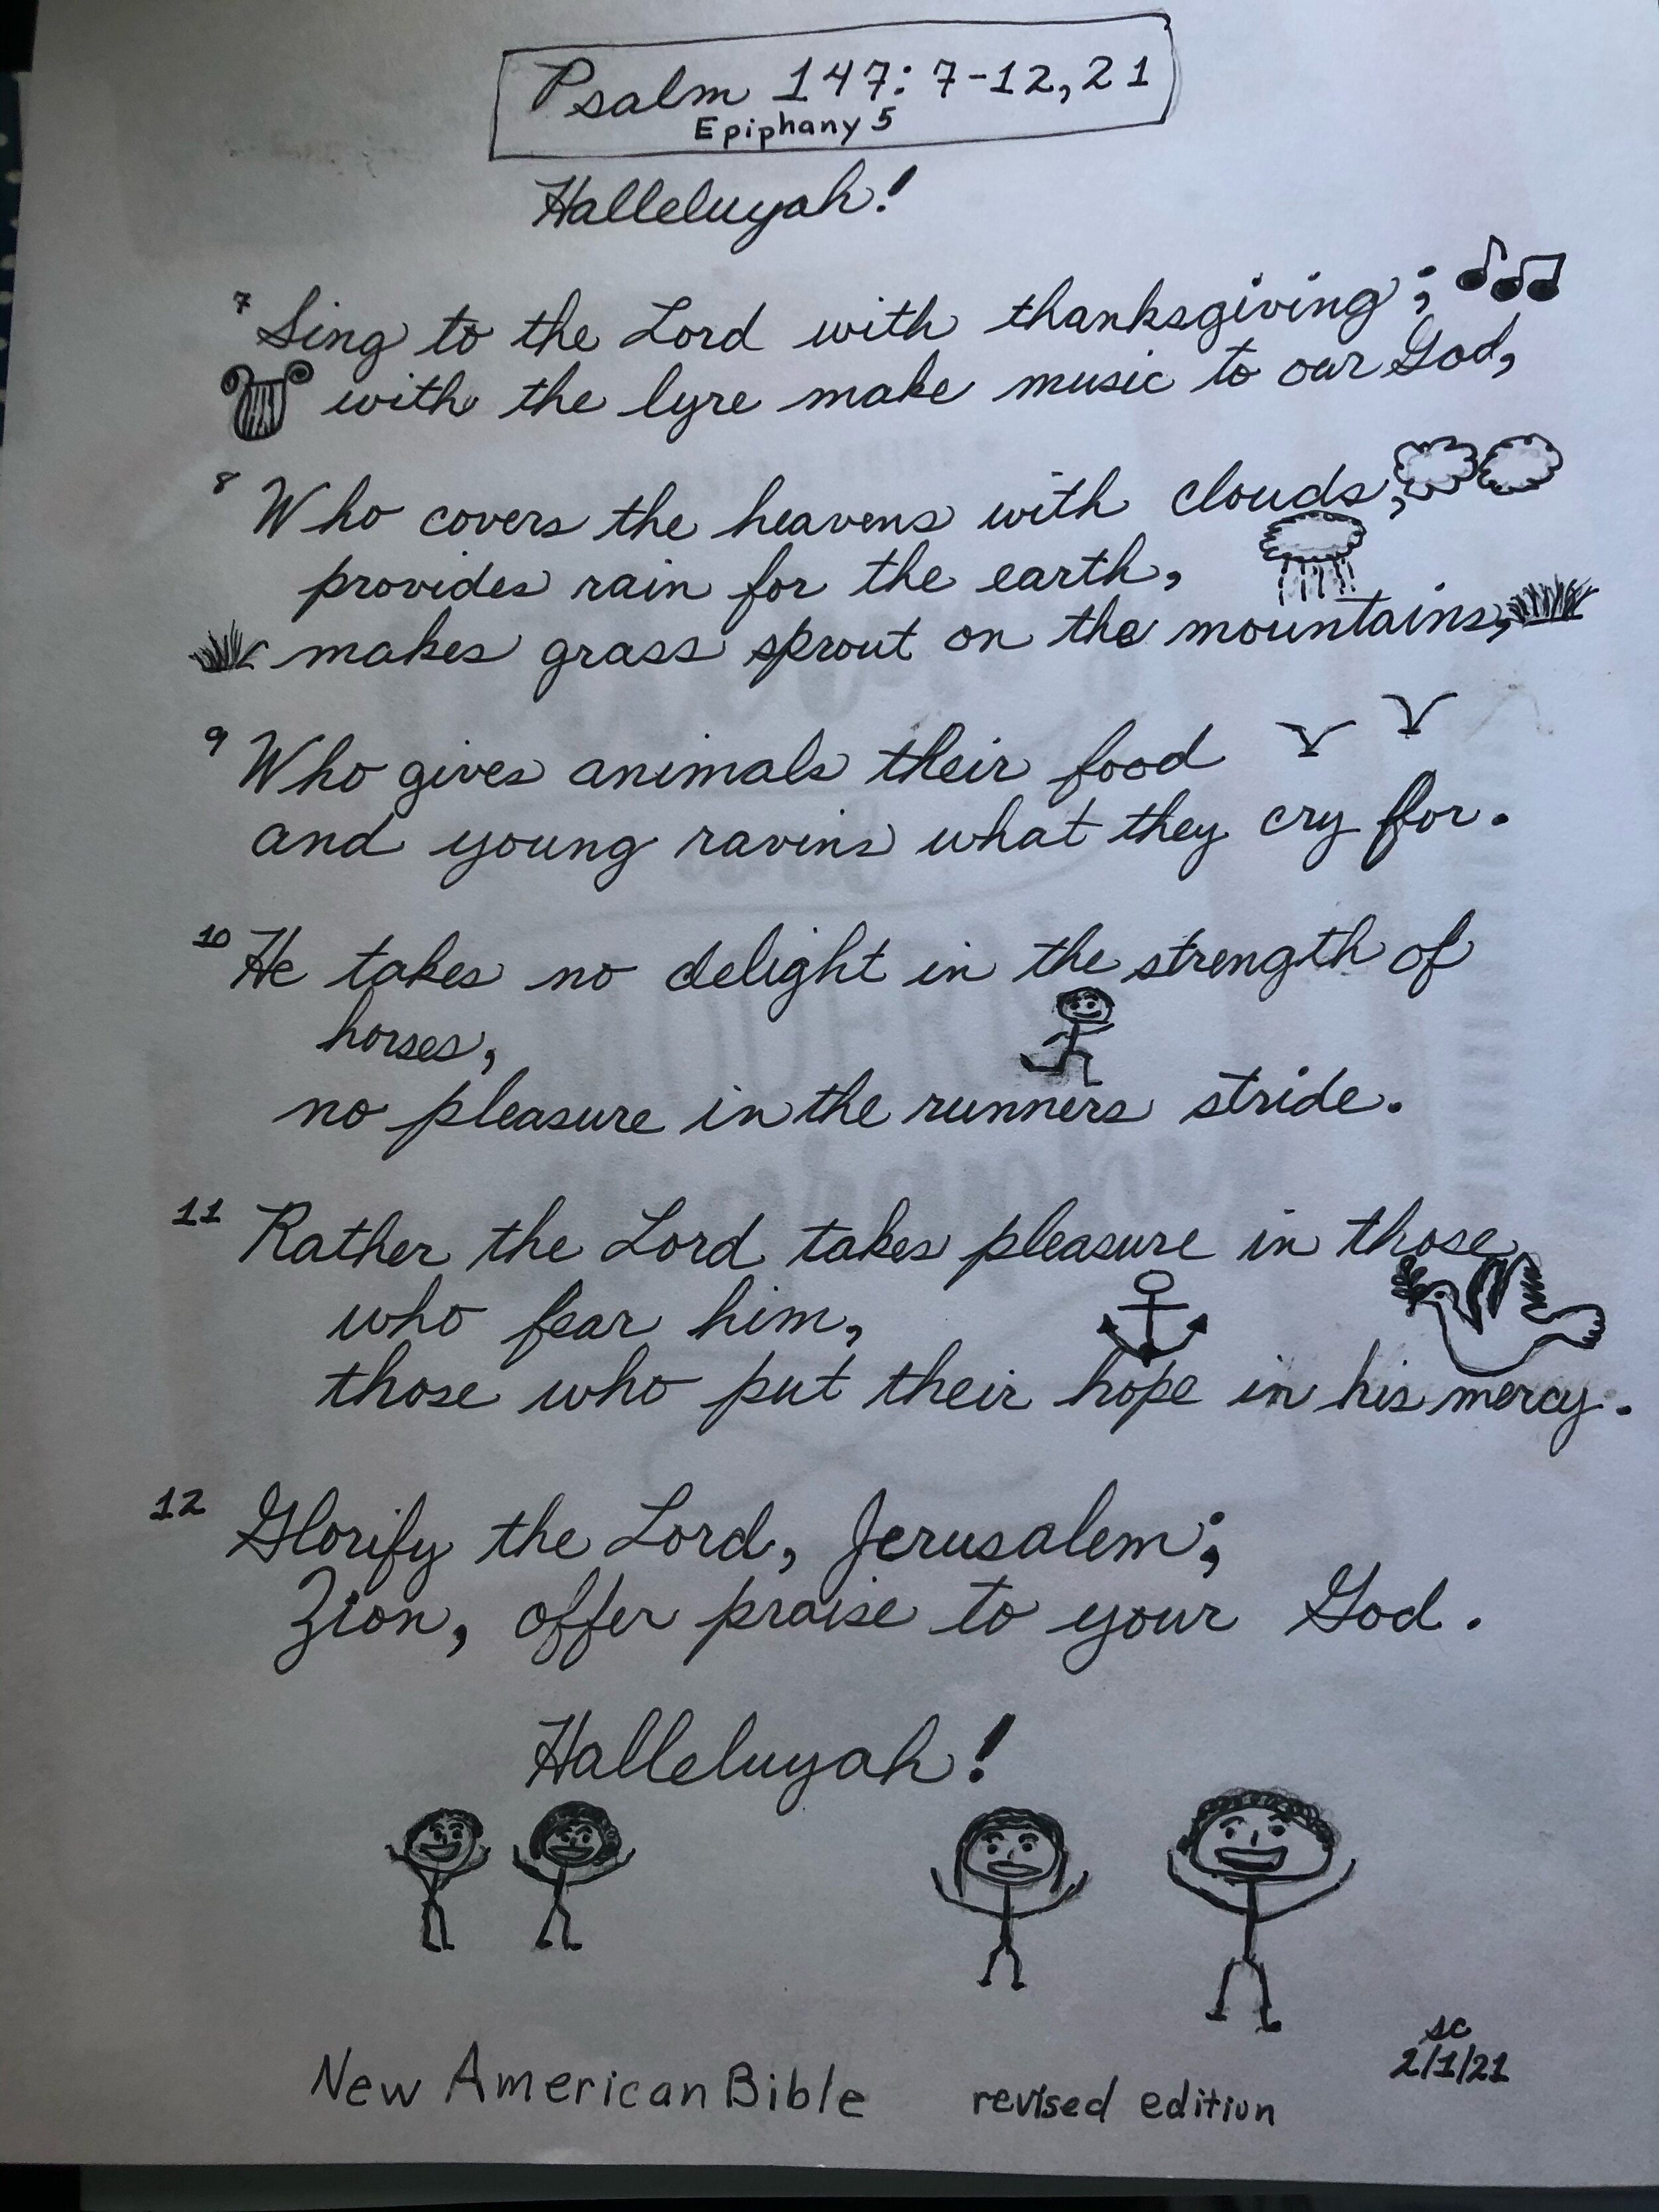 Psalm 147: 7-12, 21
Epiphany 5
Halleluyah!
7 Sing to the Lord with thanksgiving;
with the lyre make music to our God,
8 Who covers the heavens with clouds,
provides rain for the earth,
makes grass sprout on the mountains,
9 Who gives animals their food
and young ravins what they cry for.
10 He takes no delight in the strength of
horses,
no pleasure in the runners stride.
11 Rather the Lord takes pleasure in those
who fear him,
those who put their hope in his mercy.
12 Glorify the Lord, Jerusalem;
Zion, offer praise to your God.
Halleluyah!
sc
2/1/21
New American Bible revised edition